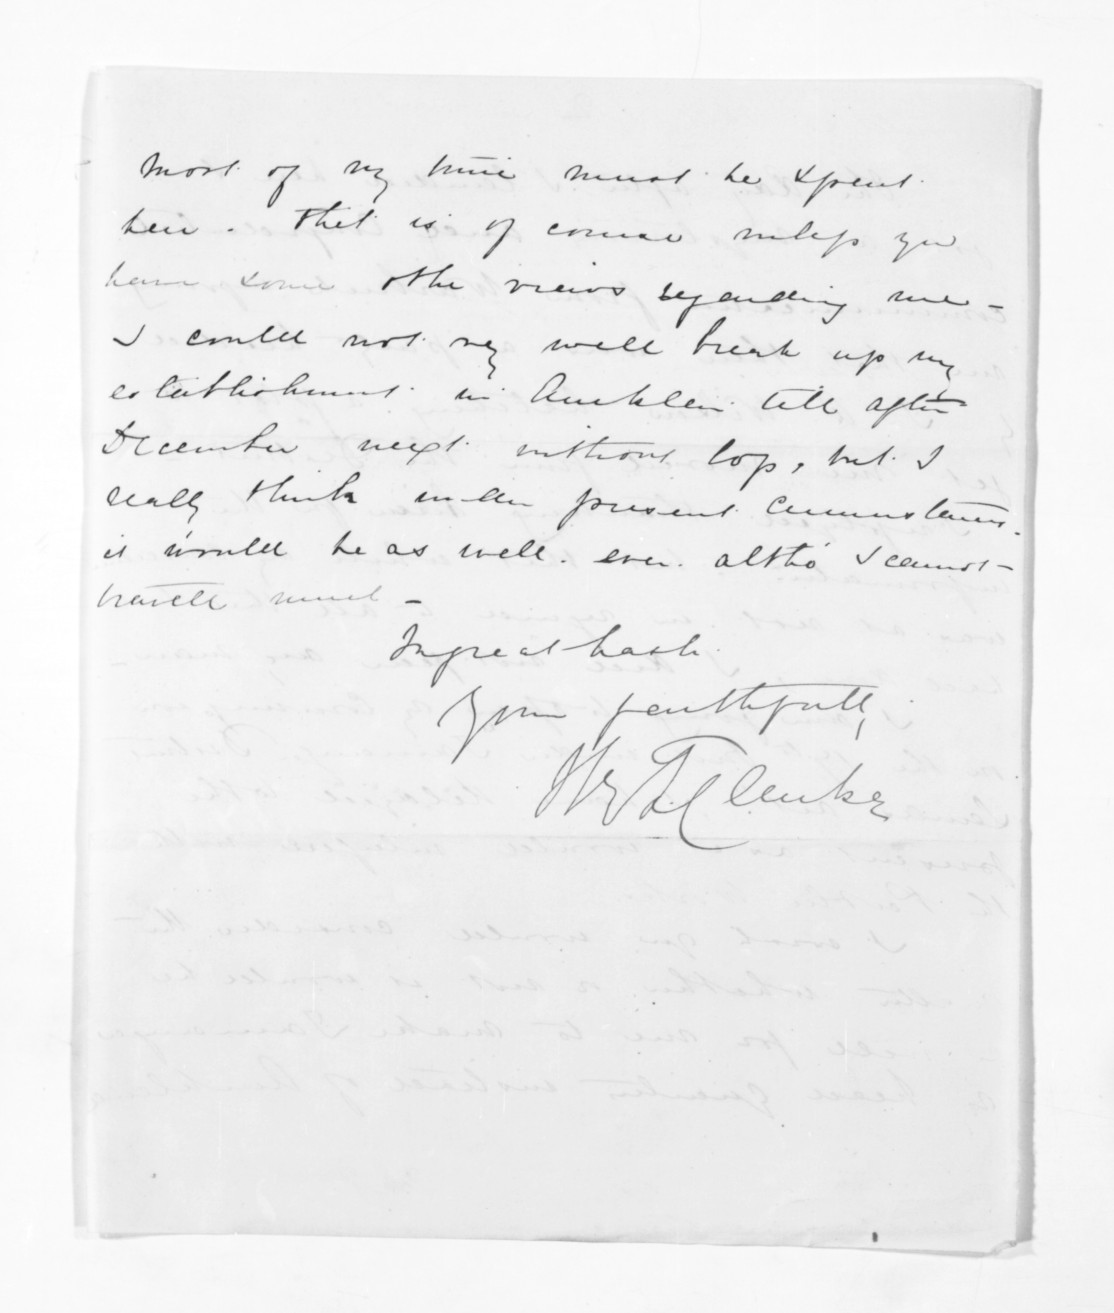 most of my time must be spent
here. That is of course unless you
have some other views regarding me –
I could not very well break up my
establishment in Auckland till after
December next without loss, but I
really think under present circumstances.
it would be as well. even. altho' I cannot –
travell much –
In great haste
Yours faithfully,
Hy T Clarke